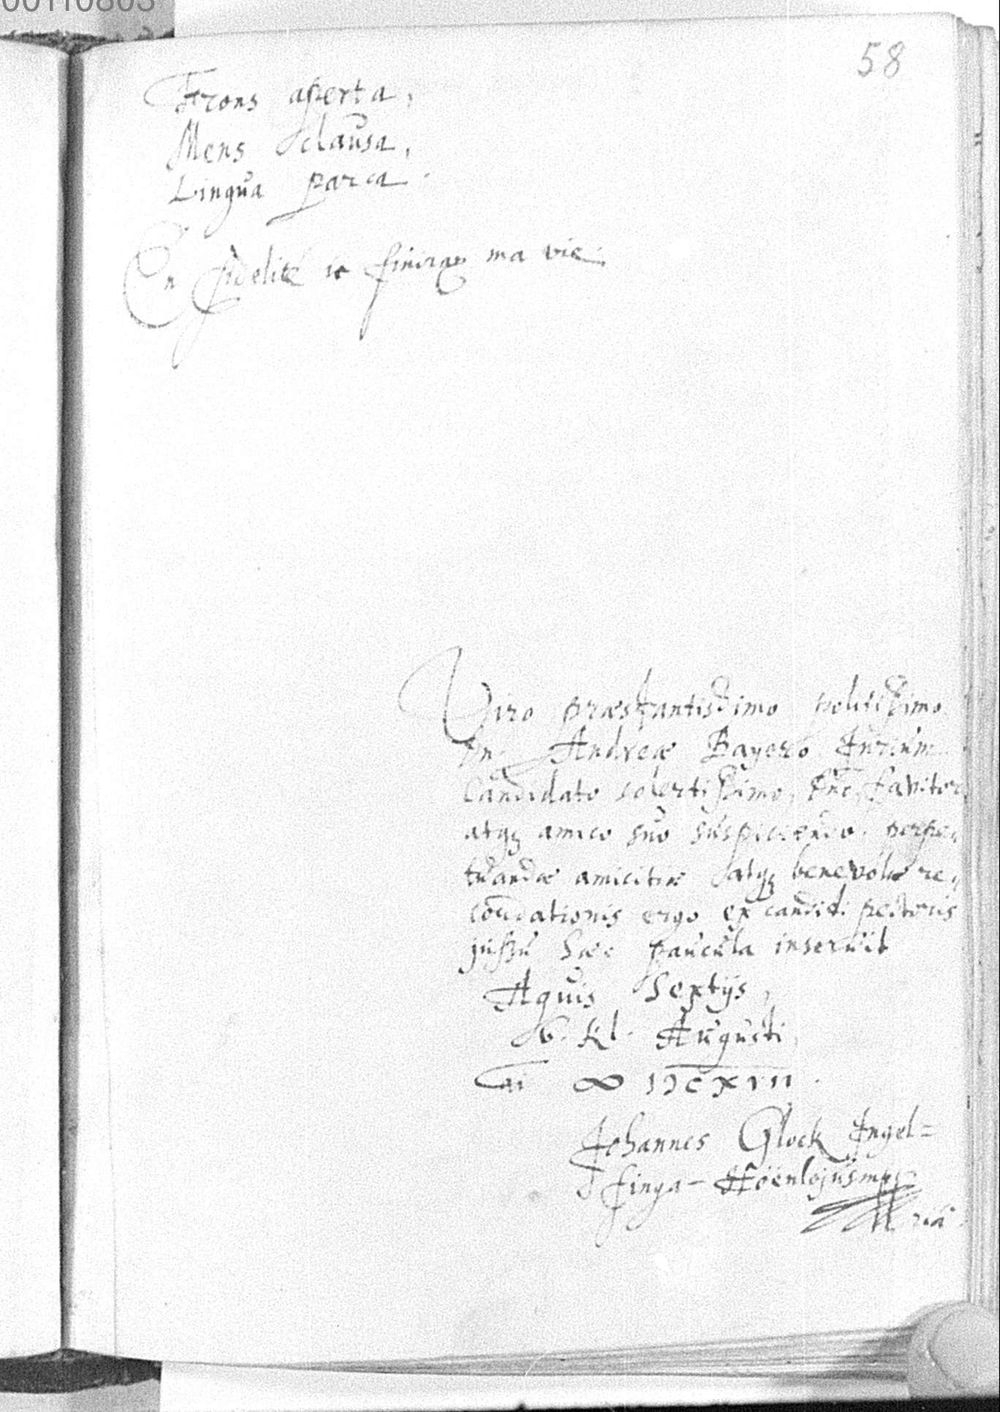 00110803
58
Frons aperta,
Mens clausa,
Lingua parca.
En fidelité ie finiray ma vie.
Viro præstantissimo politissimo
Dn. Andreæ Bayero Jurium
Candidato solertissimo, fautori
atq; amico suo suspiciendo, perpe,,
tuandæ amicitiæ atq; benevolæ re,,
cordationis ergo ex candidi pectoris
jussu hæc paucula inseruit
Aquis Sextijs,
V. Kl. Augusti,
∞ IƆCXVII.
Johannes Glock Ingel=
finga-Hoënlojus mp
ria